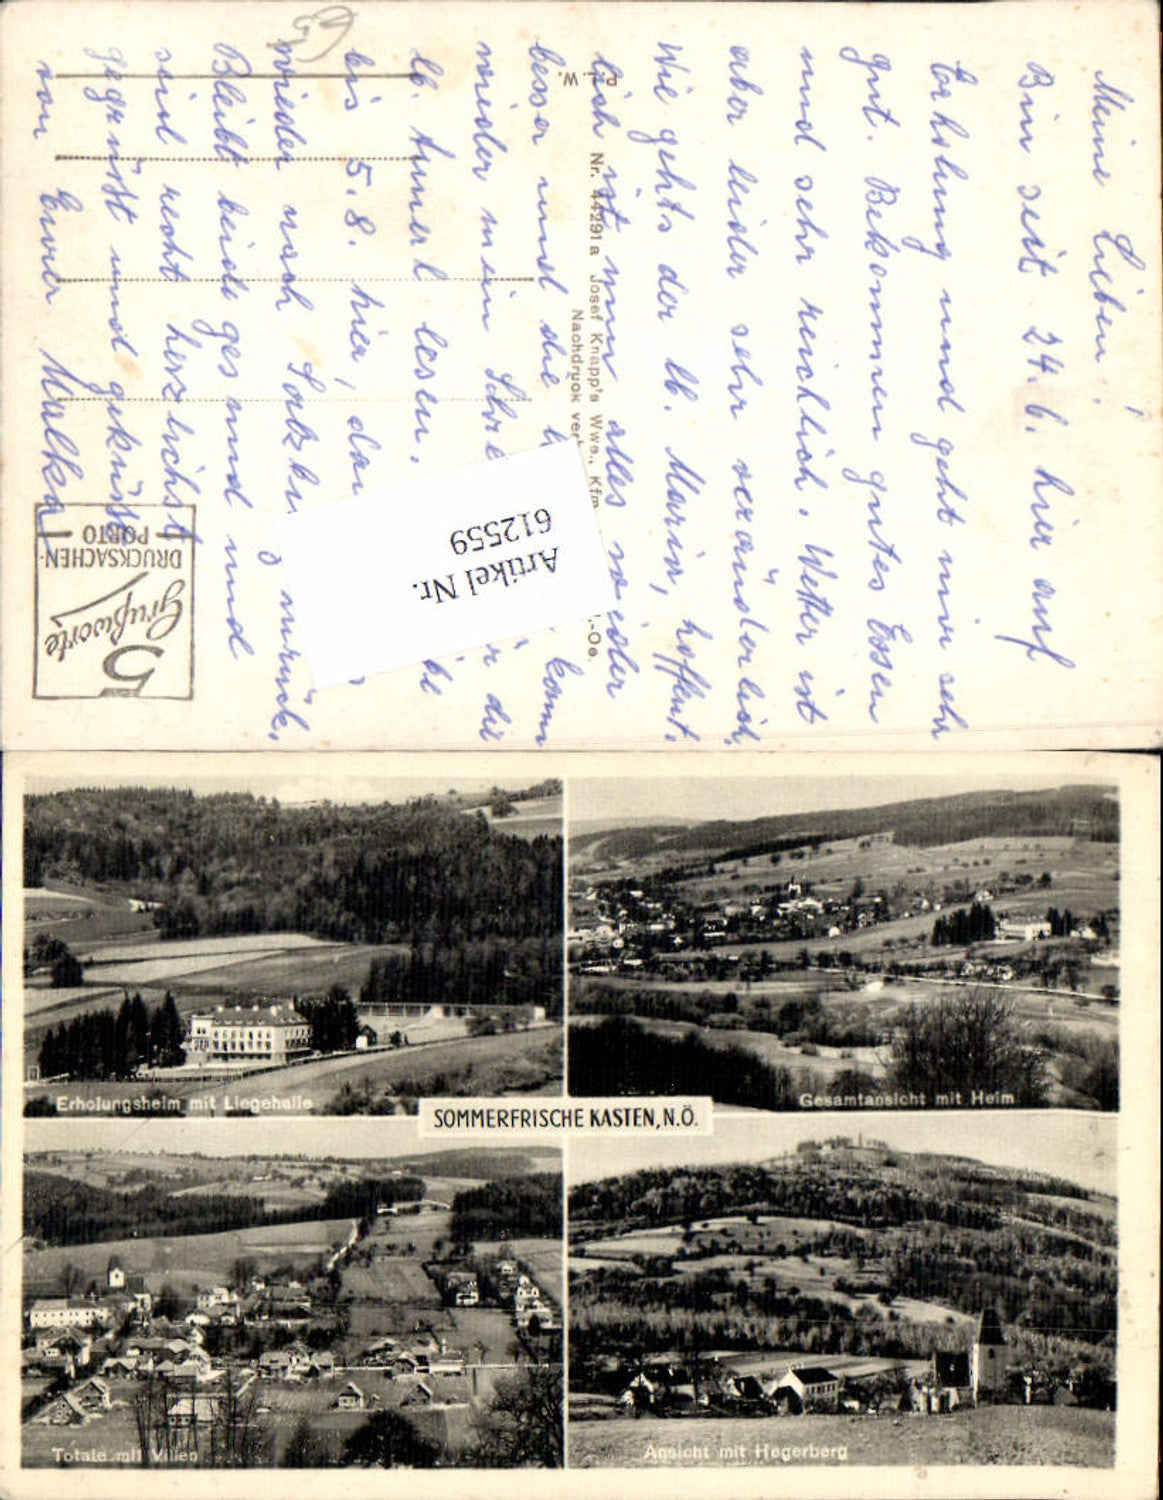 Meine Lieben!
Bin seit 24.6. hier auf
Erholung und geht mir sehr
gut. Bekommen gutes Essen
und sehr reichlich. Wetter ist
aber leider sehr veränderlich.
Wie gehts der lb. Maria, hoffent.
lich ist nun alles wieder
besser und die kann
wieder mein für die
lb. lesen.
bis 5.8. hier, dan
wieder nach zurück.
Bleibt beide gesund und
seid recht herzlichst
gegrüßt und geküßt
von Eurer
P. L. W.
Nr. 44291a Josef Knapp's Wwe., Kfm
Nachdruck
Artikel Nr.
612559
5
Grußworte
DRUCKSACHEN-
PORTO
Erholungsheim mit Liegehalle
Gesamtansicht mit Heim
SOMMERFRISCHE KASTEN, N.Ö.
Totale mit Villen
Ansicht mit Hegerberg